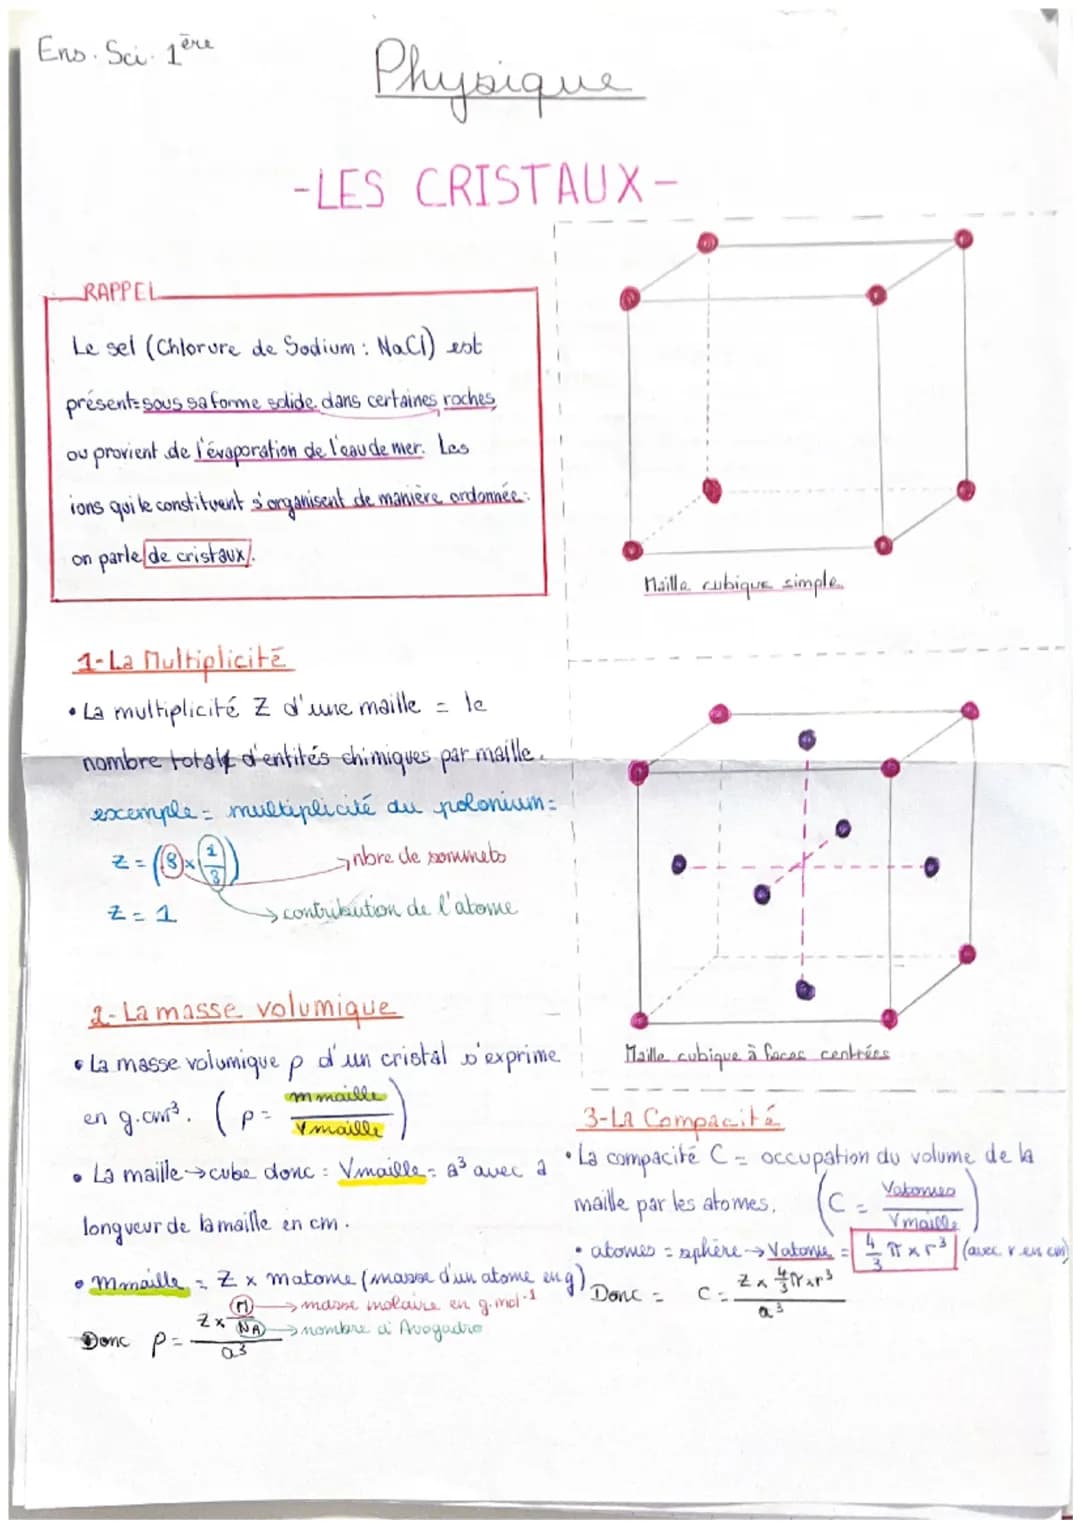 Ens. Sci. 1ère
Physique
-LES CRISTAUX-
RAPPEL
Le sel (Chlorure de Sodium : NaCl) est
présent sous sa forme solide dans certaines roches
ou provient de l'évaporation de l'eau de mer. Les
ions qui le constituent s'organisent de manière ordonnée :
on parle de cristaux.
Maille cubique simple
1-La Multiplicité
• La multiplicité Z d'une maille = le
nombre total d'entités chimiques par maille.
exemple = multiplicité du polonium =
Z = (8 × 1/8)
nbre de sommets
Z = 1
contribution de l'atome
Maille cubique à faces centrées
2-La masse volumique
• La masse volumique ρ d'un cristal s'exprime
en g.cm³. (ρ = mmaille / Vmaille)
• La maille → cube donc : Vmaille = a³ avec a
longueur de la maille en cm.
• Mmaille = Z × matome (masse d'un atome en g)
Donc ρ = Z × M/NA / a³
masse molaire en g.mol⁻¹
nombre d'Avogadro
3-La Compacité
• La compacité C = occupation du volume de la
maille par les atomes. (C = Vatomes / Vmaille)
• atomes = sphère → Vatome = 4/3 π × r³ (avec r en cm)
Donc = C = Z × 4/3 π × r³ / a³